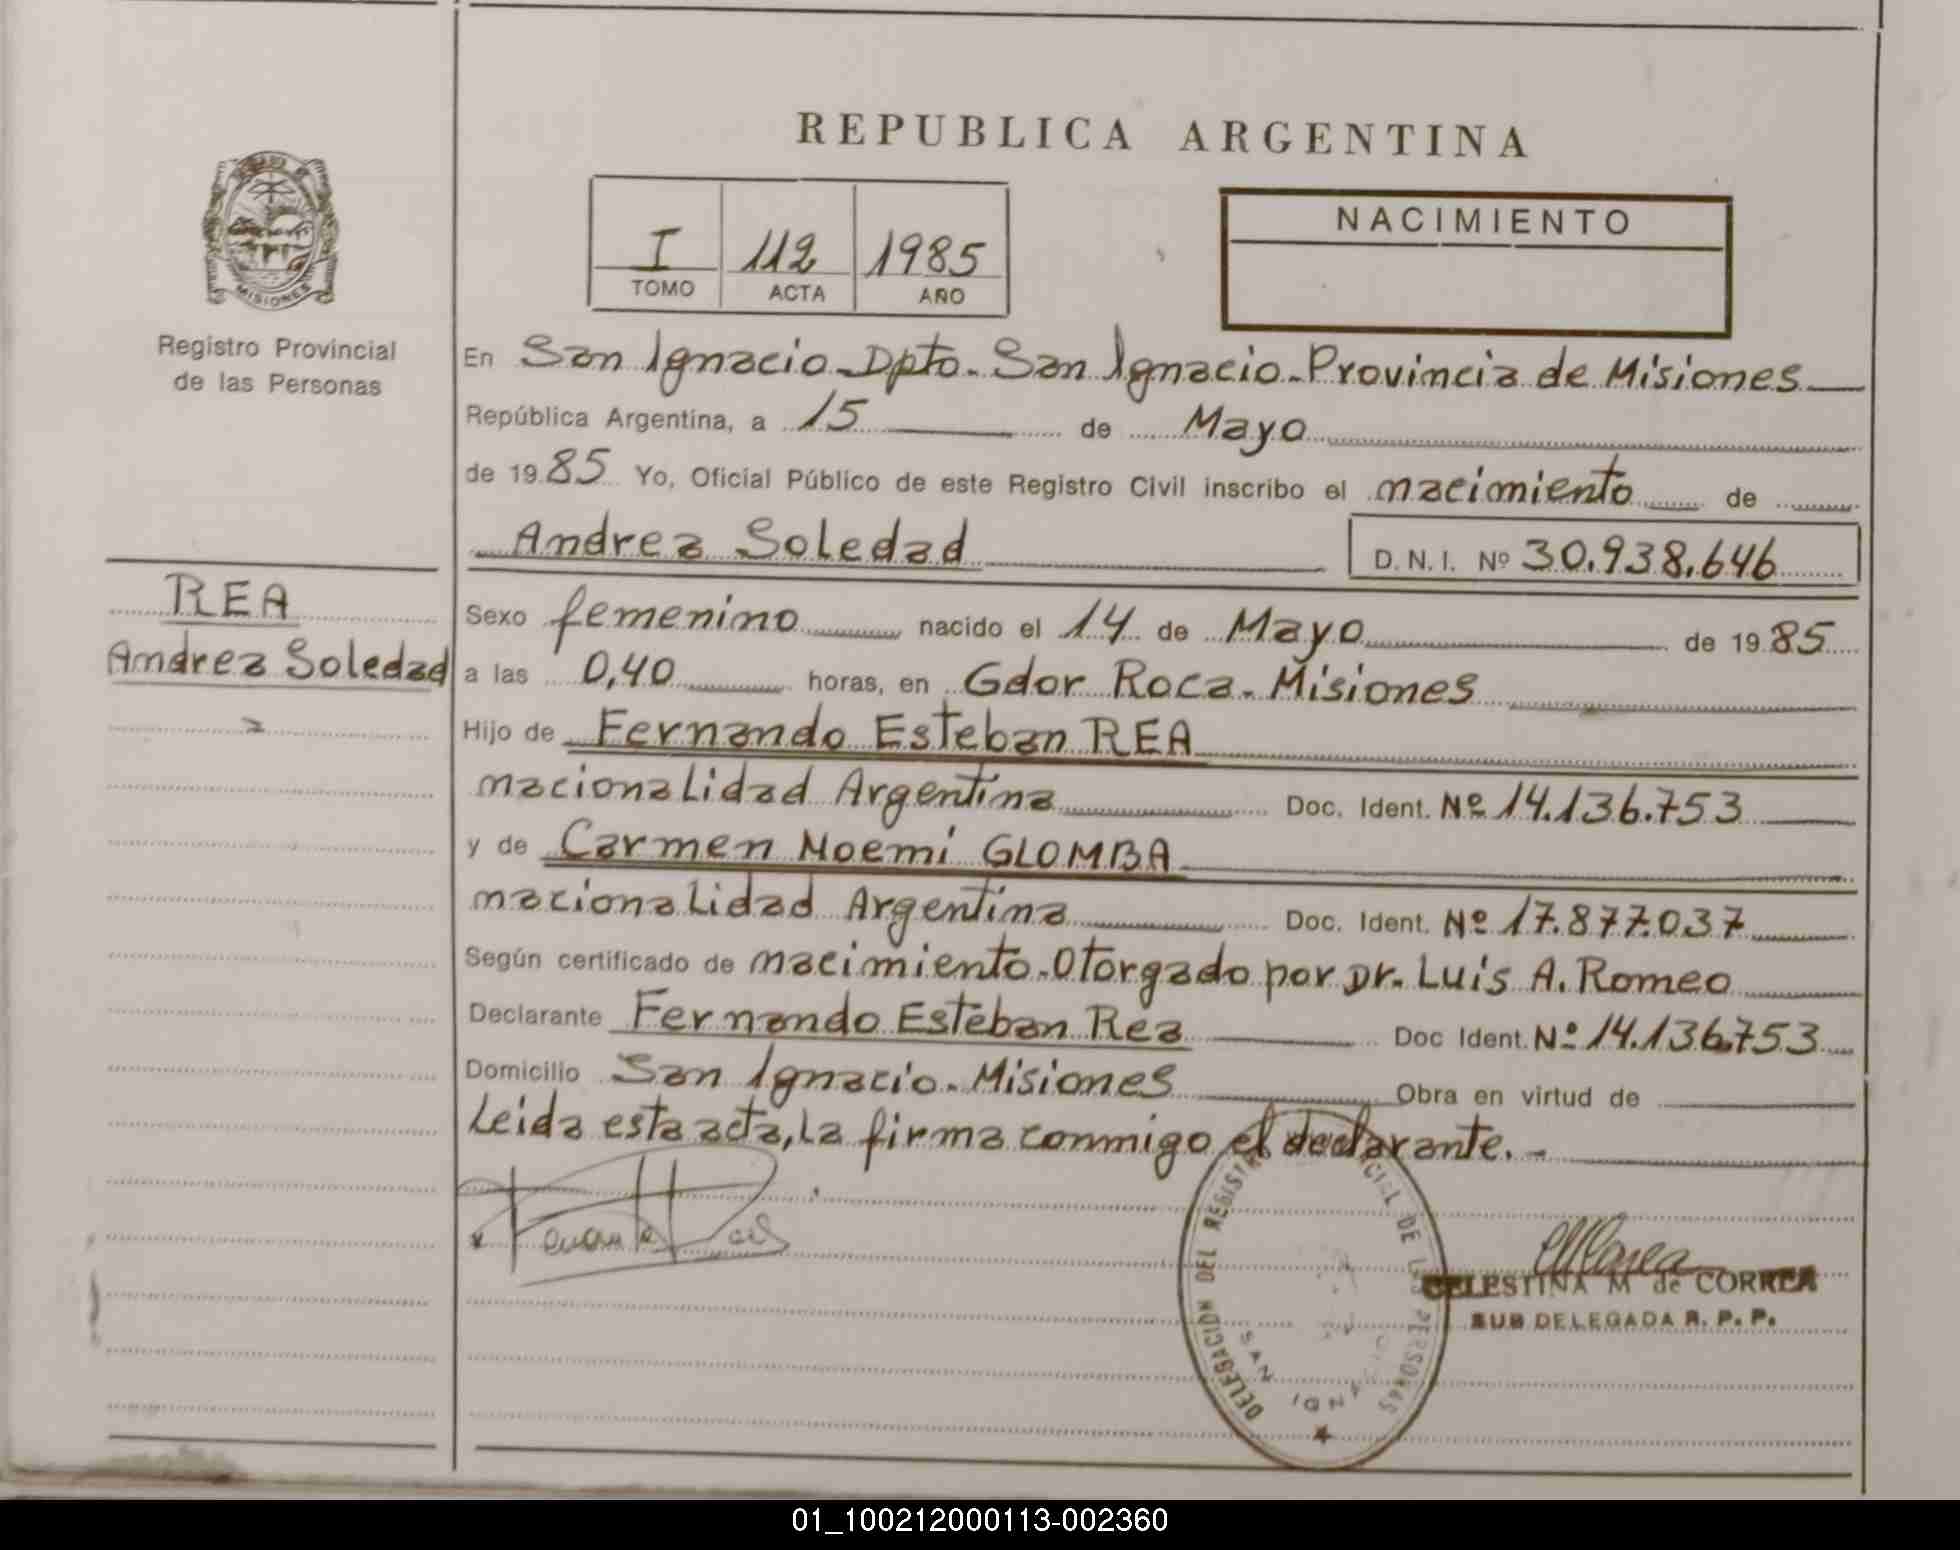 REPUBLICA ARGENTINA
I 112 1985
TOMO ACTA AÑO
NACIMIENTO
MISIONES
Registro Provincial
de las Personas
REA
Andrea Soledad
En San Ignacio - Dpto. San Ignacio - Provincia de Misiones
República Argentina, a 15 de Mayo
de 1985 Yo, Oficial Público de este Registro Civil inscribo el nacimiento de
Andrea Soledad D.N.I. Nº 30.938.646
Sexo femenino nacido el 14 de Mayo de 1985
a las 0,40 horas, en Gdor Roca - Misiones
Hijo de Fernando Esteban REA
nacionalidad Argentina Doc. Ident. Nº 14.136.753
y de Carmen Noemi GLOMBA
nacionalidad Argentina Doc. Ident. Nº 17.877.037
Según certificado de nacimiento - Otorgado por Dr. Luis A. Romeo
Declarante Fernando Esteban Rea Doc Ident. Nº 14.136.753
Domicilio San Ignacio - Misiones Obra en virtud de
Leida esta acta, la firma conmigo el declarante. -
DELEGACION DEL REGISTRO DE LAS PERSONAS
SAN IGNACIO
CELESTINA M de CORREA
SUB DELEGADA R. P. P.
01_100212000113-002360